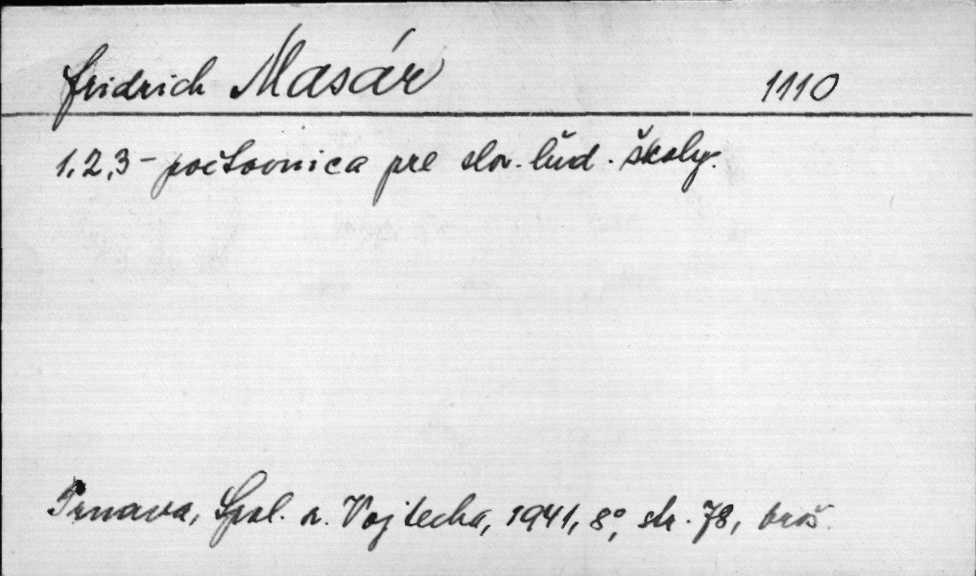 Fridrich Masár 1110
1, 2, 3 - počtovnica pre slov. ľud. školy.
Trnava, Spol. s. Vojtecha, 1941, 8°, str. 78, brož.